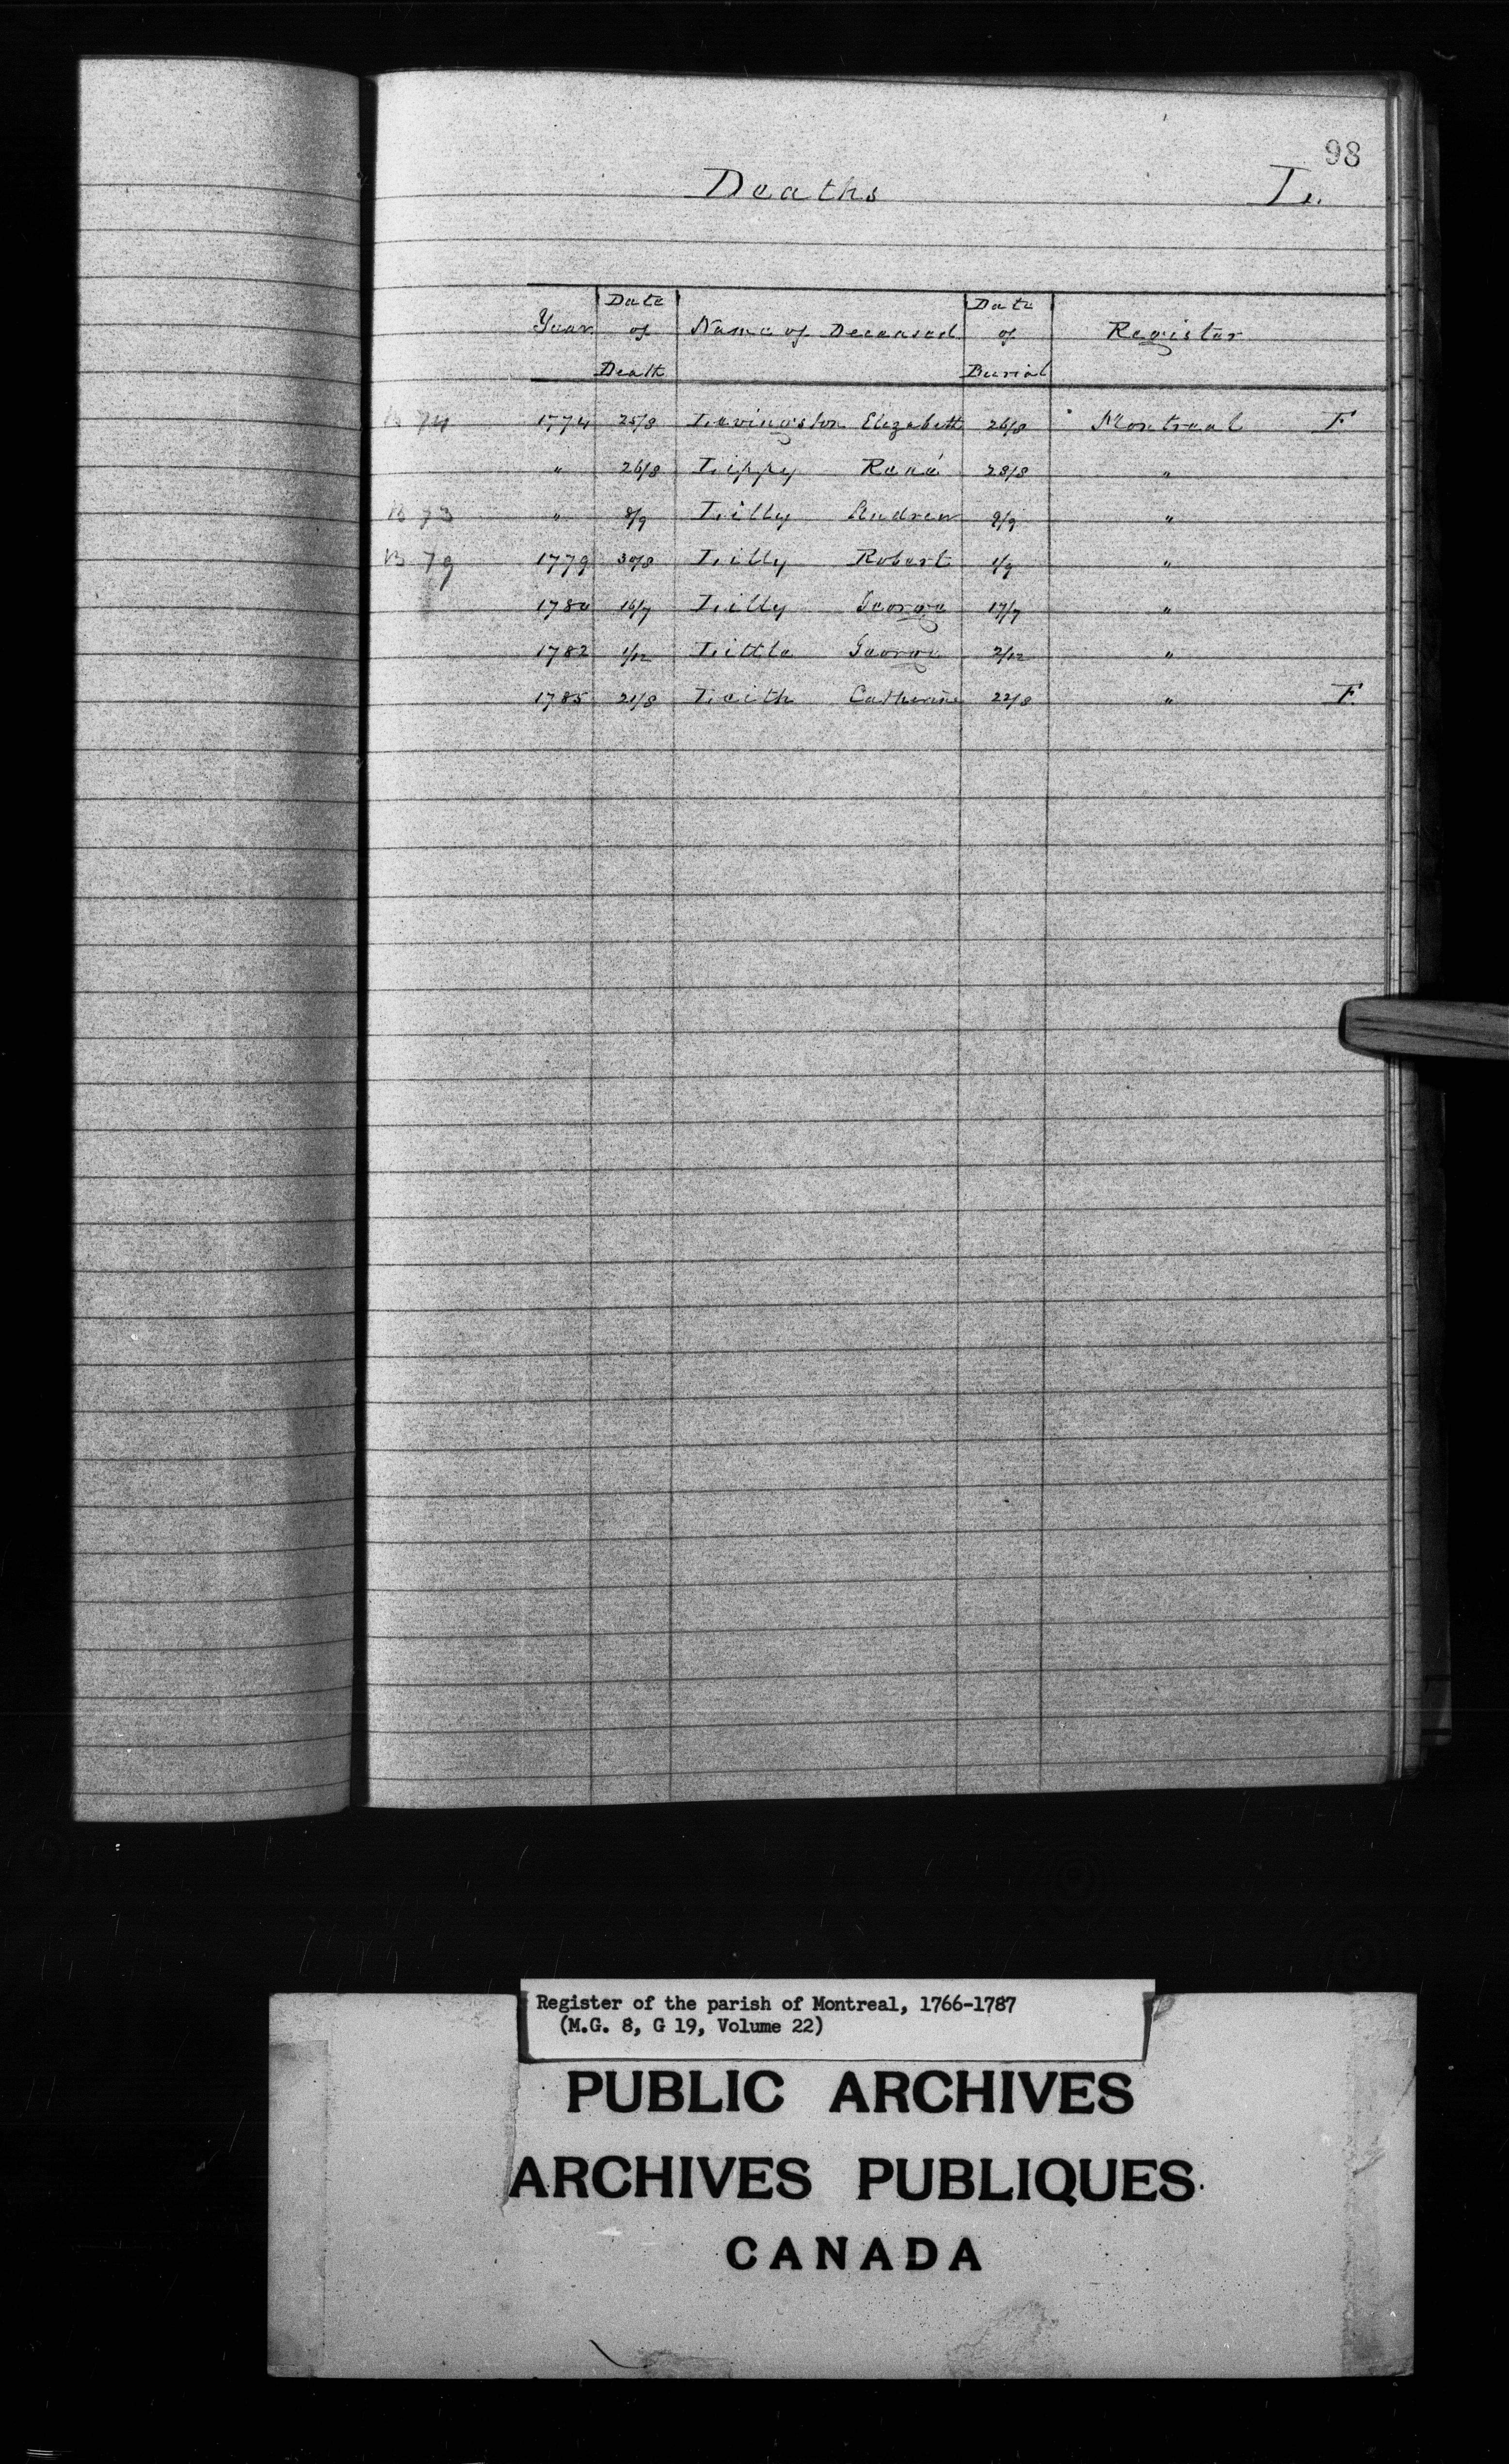 98
Deaths L.
Year Date of Death Name of Deceased Date of Burial Register
B 74 1774 25/8 Levingston Elizabeth 26/8 Montreal F
" 26/8 Lippy René 28/8 "
B 73 " 8/9 Lilly Andrew 9/9 "
B 79 1779 30/8 Lilly Robert 1/9 "
1780 16/7 Lilly George 17/7 "
1782 1/12 Little George 2/12 "
1785 21/8 Leith Catherine 22/8 " F.
Register of the parish of Montreal, 1766-1787
(M.G. 8, G 19, Volume 22)
PUBLIC ARCHIVES
ARCHIVES PUBLIQUES
CANADA